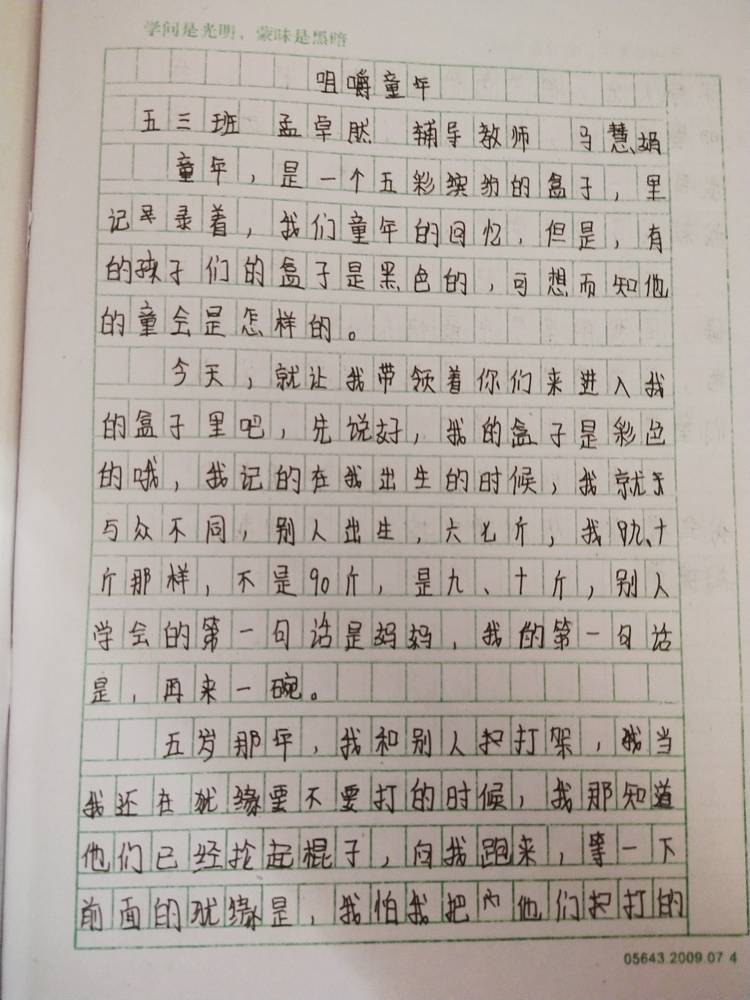 学问是光明，蒙昧是黑暗
咀嚼童年
五三班 孟卓然 辅导教师 马慧娟
童年，是一个五彩缤纷的盒子，里
记录着，我们童年的回忆，但是，有
的孩子们的盒子是黑色的，可想而知他
的童会是怎样的。
今天，就让我带领着你们来进入我
的盒子里吧，先说好，我的盒子是彩色
的哦，我记的在我出生的时候，我就于
与众不同，别人出生，六七斤，我九、十
斤那样，不是90斤，是九、十斤，别人
学会的第一句话是妈妈，我的第一句话
是，再来一碗。
五岁那年，我和别人打架，我当
我还在犹缘要不要打的时候，我那知道
他们已经抡起棍子，向我跑来，等一下
前面的犹缘是，我怕我把他们打的
05643.2009.07 4